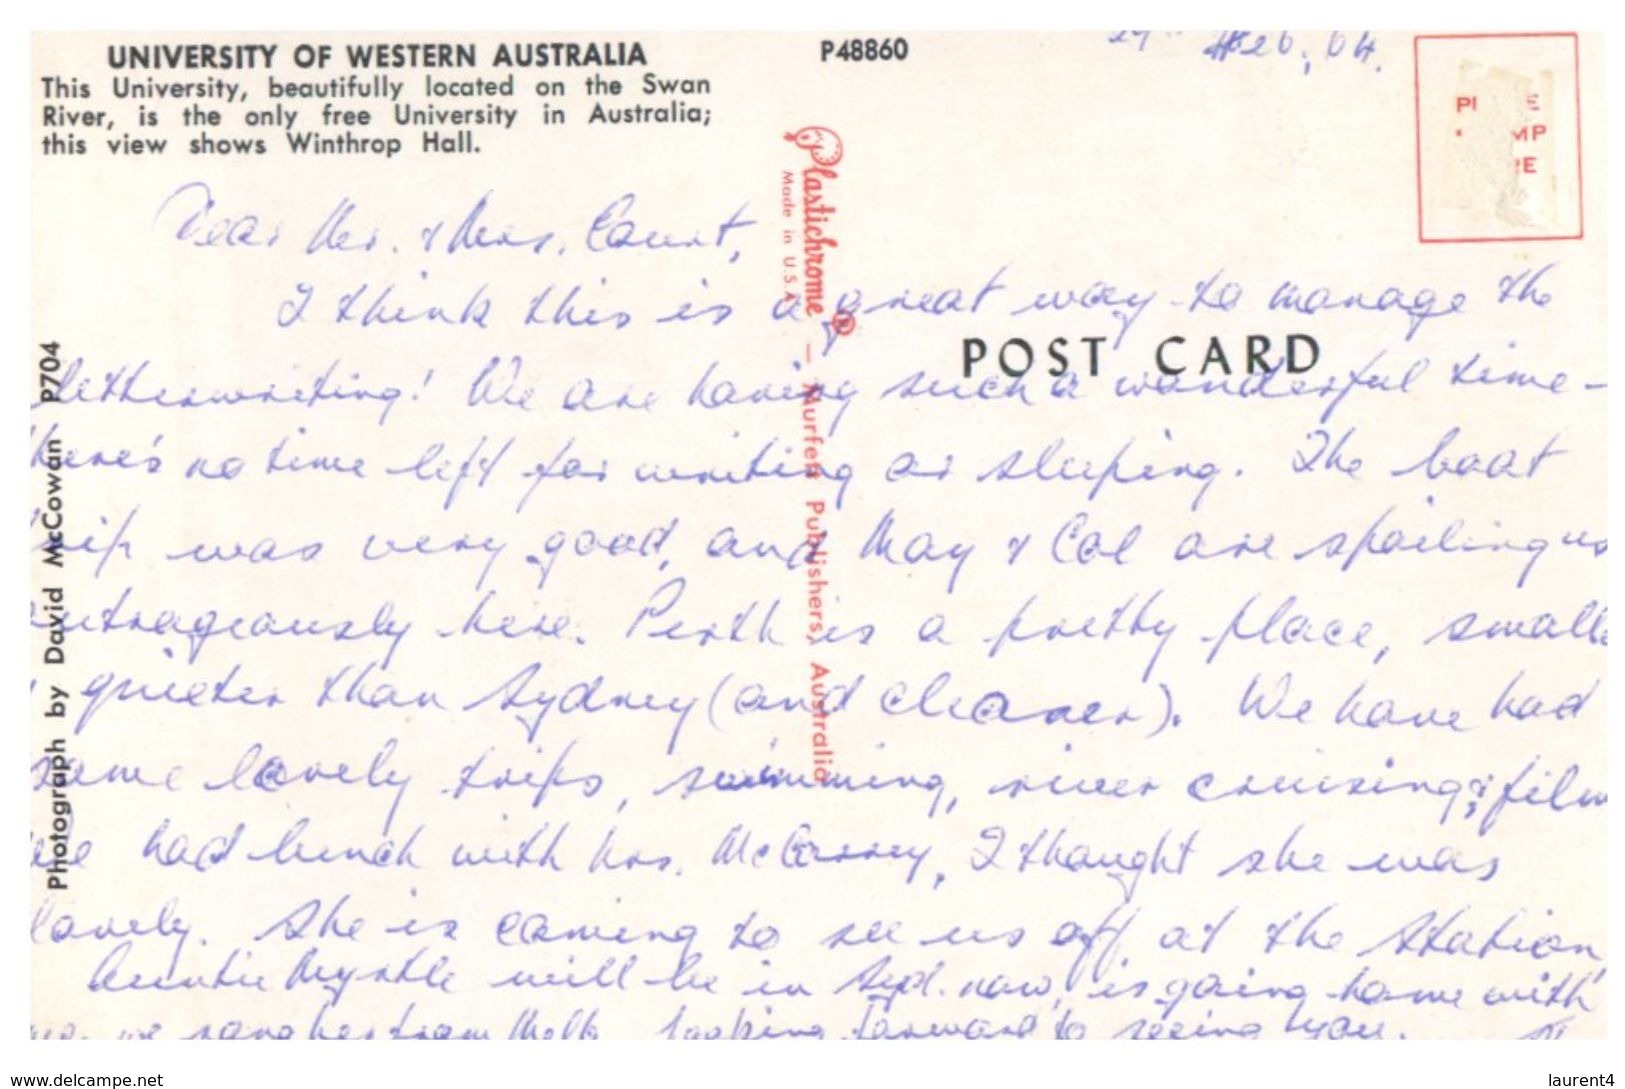 UNIVERSITY OF WESTERN AUSTRALIA
This University, beautifully located on the Swan
River, is the only free University in Australia;
this view shows Winthrop Hall.
P48860
Feb, 64.
Plastichrome ®
Made in U.S.A
— Murfett Publishers, Australia
Photograph by David McCowan P704
POST CARD
Dear Mr. & Mrs. Count,
I think this is a great way to manage the
letterwriting! We are having such a wonderful time –
there's no time left for writing or sleeping. The boat
trip was very good, and May & Col are spoiling us
outrageously here. Perth is a pretty place, smaller
quieter than Sydney (and cleaner). We have had
some lovely trips, swimming, river cruising, & film
We had lunch with Mrs. McGrorey, I thought she was
lovely. She is coming to see us off at the Station,
Auntie Myrtle will be in Syd. now, is going home with
we rang her from Melb. Looking forward to seeing you.
www.delcampe.net
laurent4